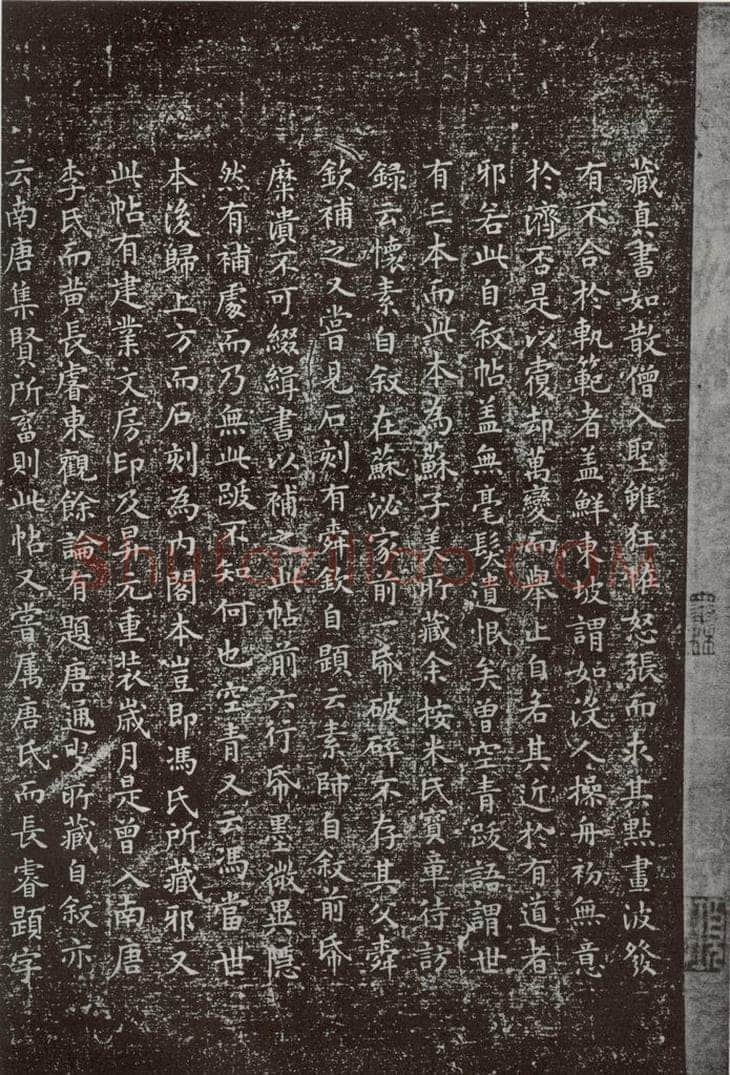 藏真書如散僧入聖雖狂怪怒張而求其點畫波發
有不合於軌範者盖鮮東坡謂如沒人操舟初無意
於濟否是以覆却萬變而舉止自若其近於有道者
邪若此自敘帖盖無毫髮遺恨矣曾空青跋語謂世
有三本而此本為蘇子美所藏余按米氏寶章待訪
録云懷素自敘在蘇泌家前一帋破碎不存其父舜
欽補之又嘗見石刻有舜欽自題云素師自敘前帋
糜潰不可綴緝書以補之此帖前六行帋墨微異隱
然有補處而乃無此跋不知何也空青又云馮當世
本後歸上方而石刻為内閣本豈即馮氏所藏邪又
此帖有建業文房印及昇元重装歲月是曾入南唐
李氏而黃長睿東觀餘論有題唐通叟所藏自敘亦
云南唐集賢所畜則此帖又嘗属唐氏而長睿題字
Shufaziliao.COM